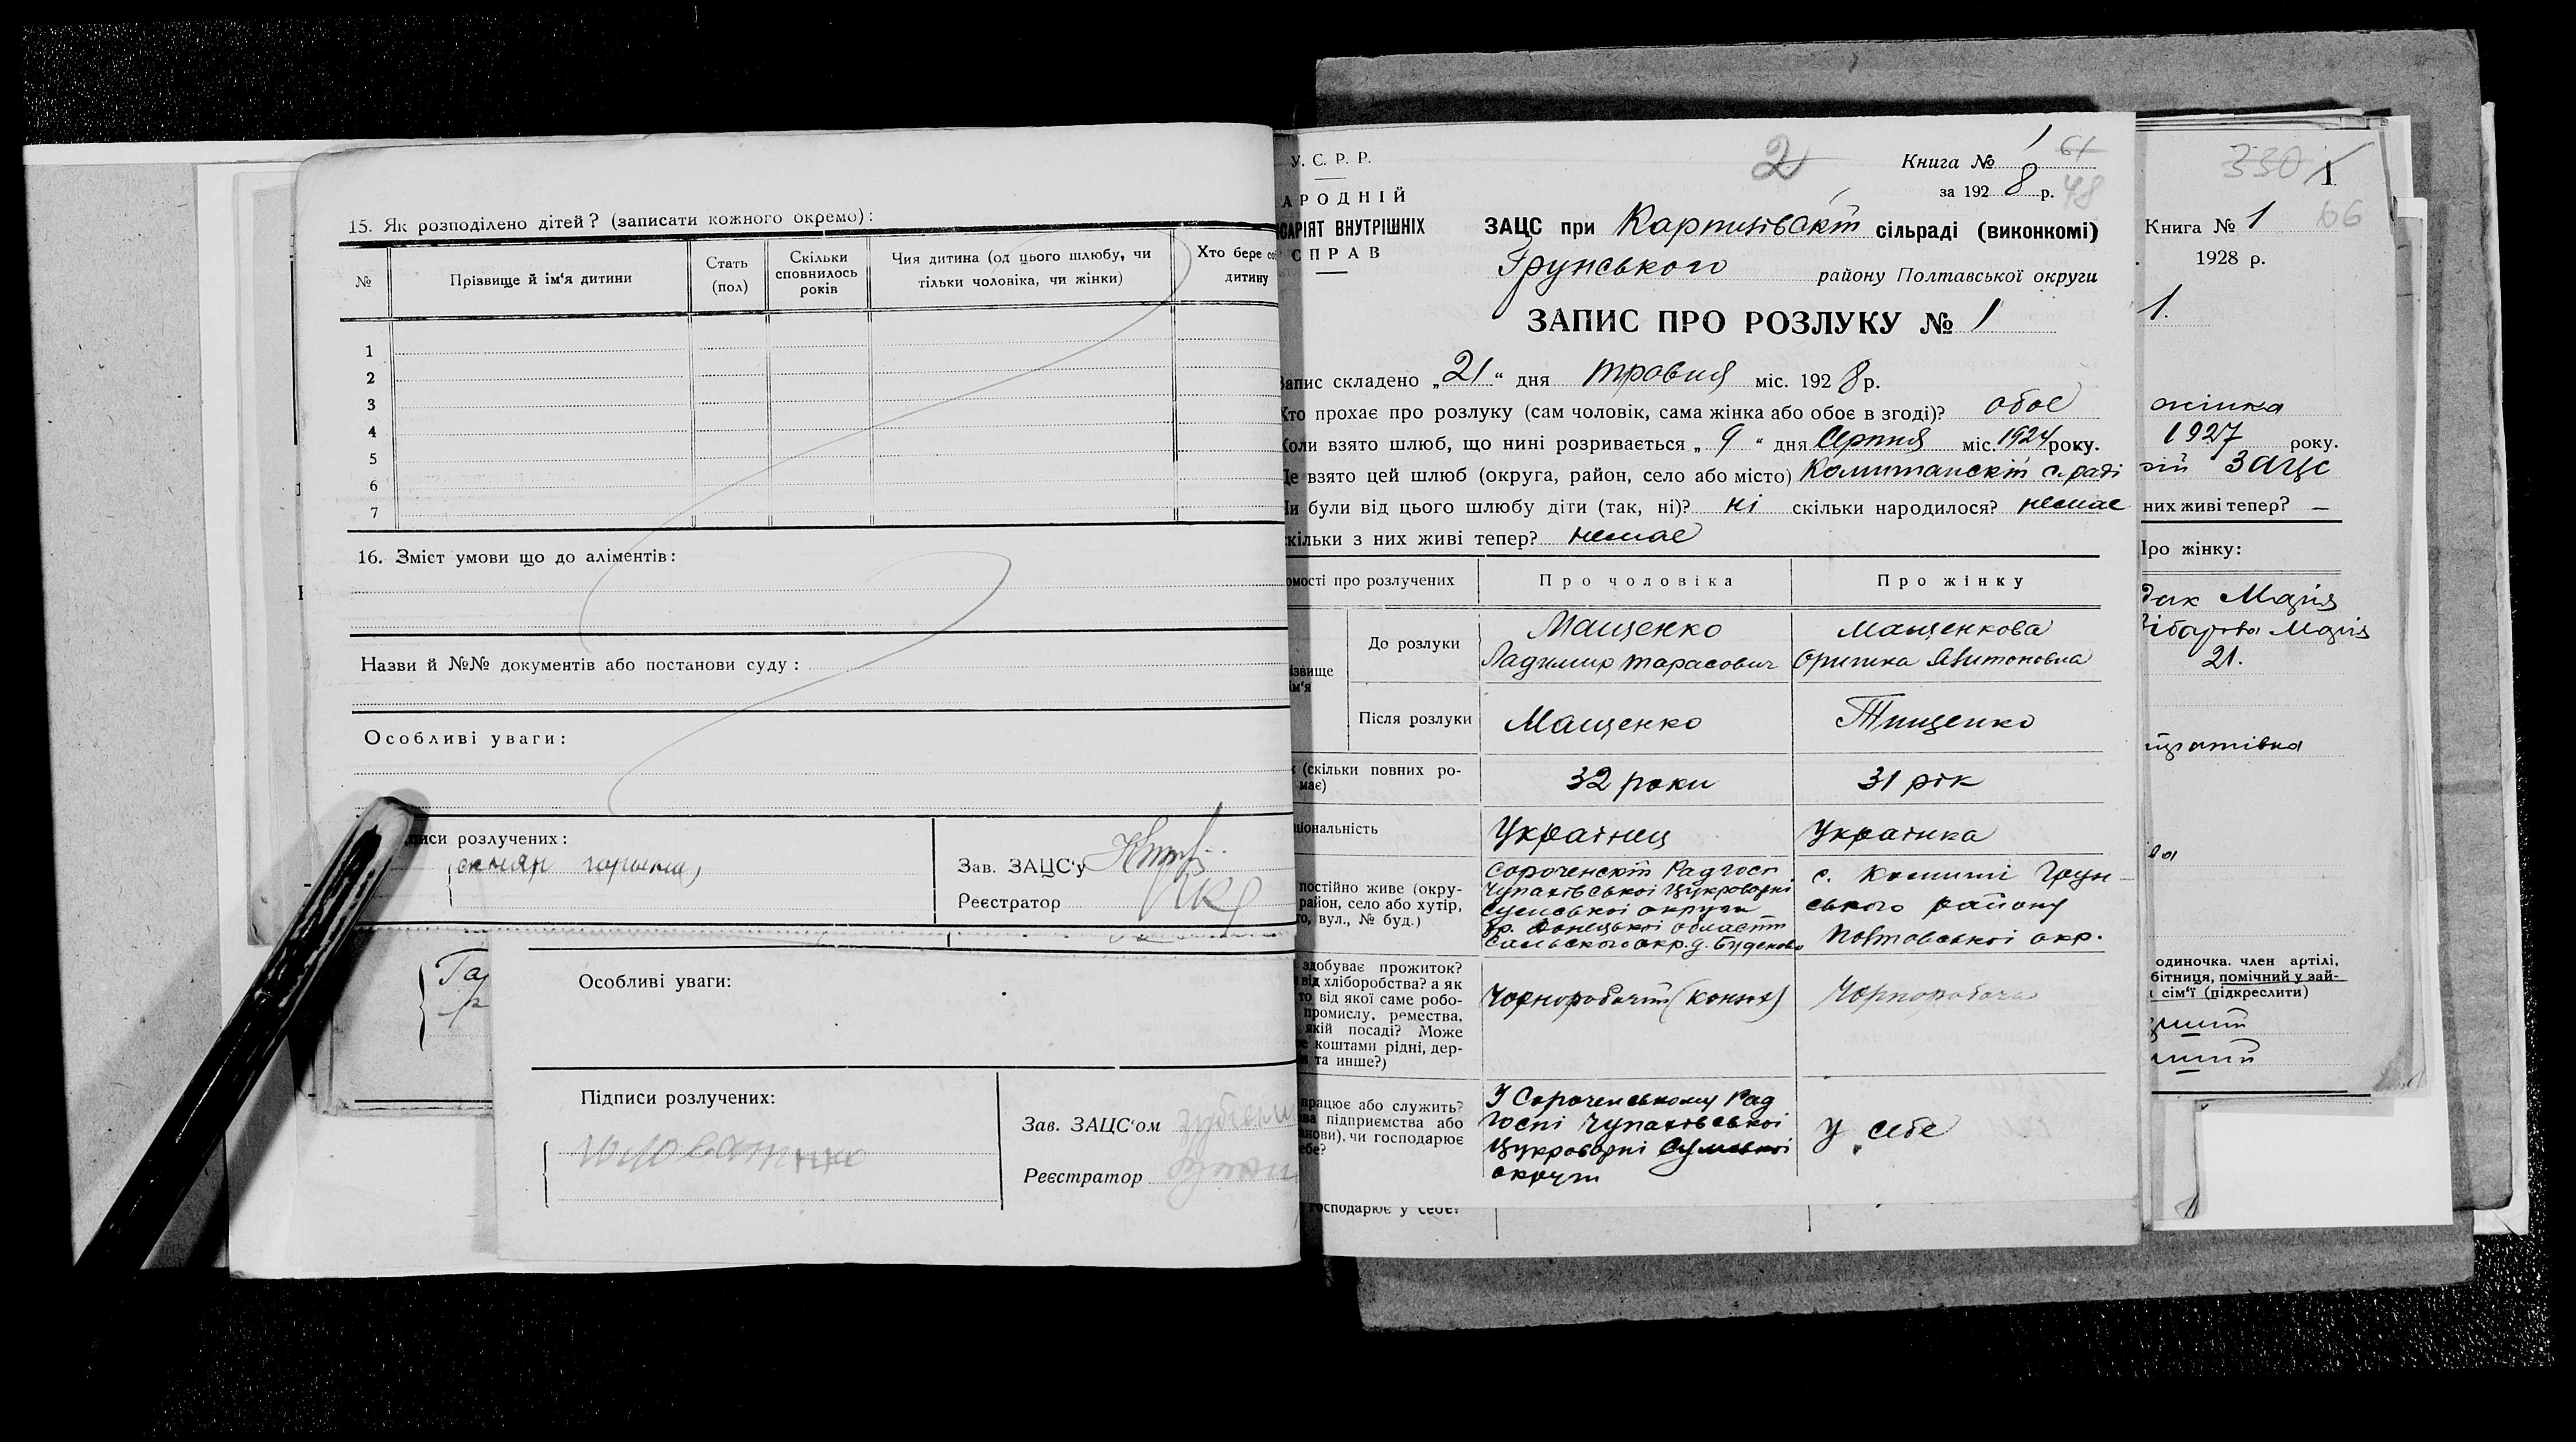 15. Як розподілено дітей? (записати кожного окремо):
№
Прізвище й ім'я дитини
Стать
(пол)
Скільки
сповнилось
років
Чия дитина (од цього шлюбу, чи
тільки чоловіка, чи жінки)
Хто бере
дитину
1
2
3
4
5
6
7
16. Зміст умови що до аліментів:
Назви й №№ документів або постанови суду:
Особливі уваги:
писи розлучених:
Зав. ЗАЦС'у
Реєстратор
Особливі уваги:
Підписи розлучених:
Зав. ЗАЦС'ом
Реєстратор
У. С. Р. Р.
АРОДНІЙ
САРІЯТ ВНУТРІШНІХ
СПРАВ
2
Книга № 1
61
за 1928 р.
48
ЗАЦС при сільраді (виконкомі)
Грунського району Полтавської округи
ЗАПИС ПРО РОЗЛУКУ № 1
Запис складено „21“ дня травня міс. 1928 р.
Хто прохає про розлуку (сам чоловік, сама жінка або обоє в згоді)? обоє
Коли взято шлюб, що нині розривається „9“ дня Серпня міс. 1924 року.
Де взято цей шлюб (округа, район, село або місто) с.раді
Чи були від цього шлюбу діти (так, ні)? ні скільки народилося? немає
скільки з них живі тепер? немає
омості про розлучених
Про чоловіка
Про жінку
ізвище
ім'я
До розлуки
Мащенко
Ладимир Тарасович
Мащенкова
Оришка
Після розлуки
Мащенко
Тищенко
к (скільки повних ро-
має)
32 роки
31 рік
ціональність
Українец
Українка
постійно живе (окру-
район, село або хутір,
то, вул., № буд.)
Радгосп
Чупахівської Цукроварні
Сумської округи
Донецької області
Сальського окр.
с. Комиші Грун-
ського району
Полтавської окр.
здобуває прожиток?
від хліборобства? а як
то від якої саме робо-
промислу, ремества,
якій посаді? Може
е коштами рідні, дер-
и та инше?)
Чорноробочий (конюх)
Чорноробоча
працює або служить?
ва підприємства або
нови), чи господарює
ебе?
У Сороченському Рад
госпі Чупахівської
Цукроварні Сумської
округи
У себе
господарює у себе?
330
1
66
Книга № 1
1928 р.
1.
жінка
1927 року.
ЗАЦС
них живі тепер? —
Про жінку:
дак Марія
Марія
21.
одиночка. член артілі,
бітниця, помічний у зай-
і сім'ї (підкреслити)